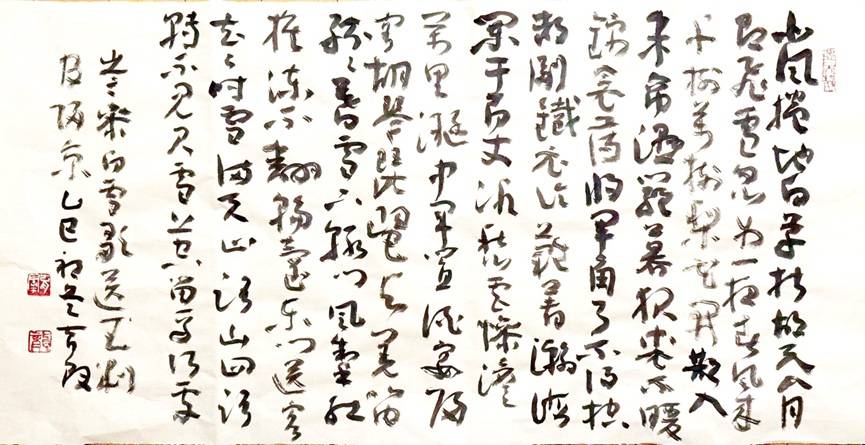 北風捲地白草折胡天八月
即飛雪忽如一夜春風来
千樹萬樹梨花開散入
珠帘濕羅幕狐裘不暖
錦衾薄将軍角弓不得控
都護鐵衣冷難着瀚海
闌干百丈冰愁雲慘淡
萬里凝中軍置酒宴歸
客胡琴琵琶与羌笛
紛紛暮雪下轅門風掣紅
旗凍不翻輪臺東門送客
去去時雪滿天山路山回路
轉不見君雪上空留馬行處
岑参白雪歌送武判
官歸京乙巳初冬